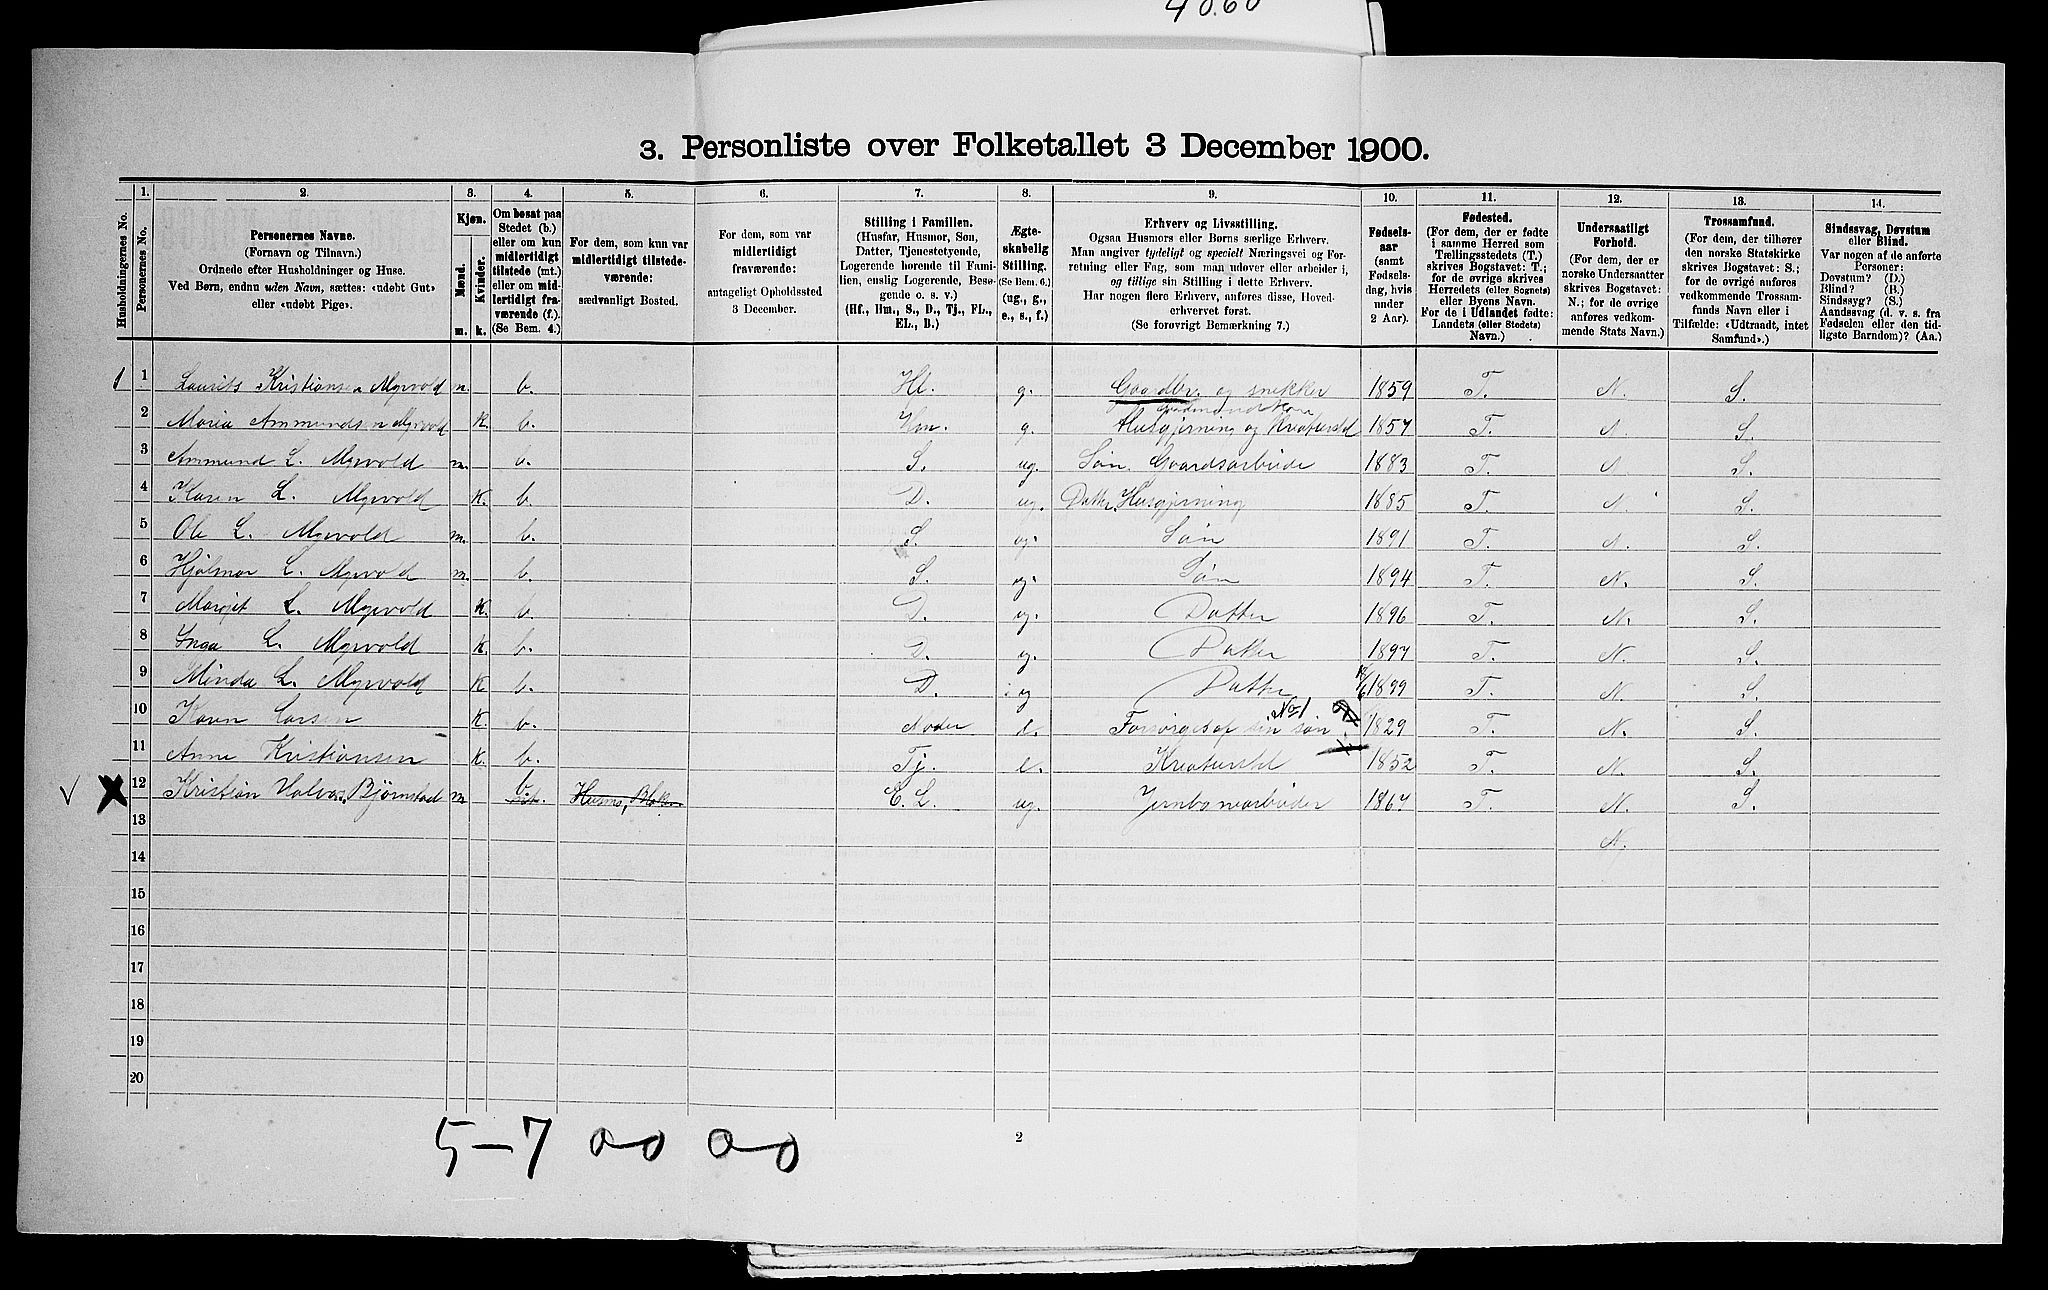 40.60
3. Personliste over Folketallet 3 December 1900.
Husholdningernes No.
1.
Personernes No.
2.
Personernes Navne.
(Fornavn og Tilnavn.)
Ordnede efter Husholdninger og Huse.
Ved Børn, endnu uden Navn, sættes: «udøbt Gut»
eller «udøbt Pige».
3.
Kjøn.
Mænd.
Kvinder.
m. k.
4.
Om bosat paa
Stedet (b.)
eller om kun
midlertidigt
tilstede (mt.)
eller om mid-
lertidigt fra-
værende (f.).
(Se Bem. 4.)
5.
For dem, som kun var
midlertidigt tilstede-
værende:
sædvanligt Bosted.
6.
For dem, som var
midlertidigt
fraværende:
antageligt Opholdssted
3 December.
7.
Stilling i Familien.
(Husfar, Husmor, Søn,
Datter, Tjenestetyende,
Logerende hørende til Fami-
lien, enslig Logerende, Besø-
gende o. s. v.)
(Hf., Hm., S., D., Tj., FL.,
EL., B.)
8.
Ægte-
skabelig
Stilling.
(Se Bem. 6.)
(ug., g.,
e., s., f.)
9.
Erhverv og Livsstilling.
Ogsaa Husmors eller Børns særlige Erhverv.
Man angiver tydeligt og specielt Næringsvei og For-
retning eller Fag, som man udøver eller arbeider i,
og tillige sin Stilling i dette Erhverv.
Har nogen flere Erhverv, anføres disse, Hoved-
erhvervet først.
(Se forøvrigt Bemærkning 7.)
10.
Fødsels-
aar
(samt
Fødsels-
dag, hvis
under
2 Aar).
11.
Fødested.
(For dem, der er fødte
i samme Herred som
Tællingsstedets (T.)
skrives Bogstavet: T.;
for de øvrige skrives
Herredets (eller Sognets)
eller Byens Navn.
For de i Udlandet fødte:
Landets (eller Stedets)
Navn.)
12.
Undersaatligt
Forhold.
(For dem, der er
norske Undersaatter
skrives Bogstavet:
N.; for de øvrige
anføres vedkom-
mende Stats Navn.)
13.
Trossamfund.
(For dem, der tilhører
den norske Statskirke
skrives Bogstavet: S.;
for de øvrige anføres
vedkommende Trossam-
funds Navn eller i
Tilfælde: «Udtraadt, intet
Samfund».)
14.
Sindssvag, Døvstum
eller Blind.
Var nogen af de anførte
Personer:
Døvstum? (D.)
Blind? (B.)
Sindssyg? (S.)
Aandssvag (d. v. s. fra
Fødselen eller den tid-
ligste Barndom)? (Aa.)
1 1 Laurits Kristiansen Myrvold m. b. Hf. g. Gaardbr. og snekker 1859 T. N. S.
2 Maria Ammundsen Myrvold k. b. Hm. g. Husgjerning og Kreaturstel 1857 T. N. S.
3 Ammund L. Myrvold m. b. S. ug. Søn, Gaardsarbeide 1883 T. N. S.
4 Karen L. Myrvold k. b. D. ug. Datter, Husgjerning 1885 T. N. S.
5 Ole L. Myrvold m. b. S. ug. Søn 1891 T. N. S.
6 Hjalmar L. Myrvold m. b. S. ug. Søn 1894 T. N. S.
7 Margit L. Myrvold k. b. D. ug. Datter 1896 T. N. S.
8 Inga L. Myrvold k. b. D. ug. Datter 1897 T. N. S.
9 Minda L. Myrvold k. b. D. ug Datter 1899 T. N. S.
10 Karen Larsen k. b. Moder e. Forsørges af sin søn No 1 1829 T. N. S.
11 Anne Kristiansen k. b. Tj. e. Kreaturstel 1852 T. N. S.
✓ X 12 Kristian Halvors. Bjørnstad m b. mt. E. L. ug. Jernbanearbeider 1867 T. N. S.
13
N.
14
15
16
17
18
19
20
5-7 00 00
2